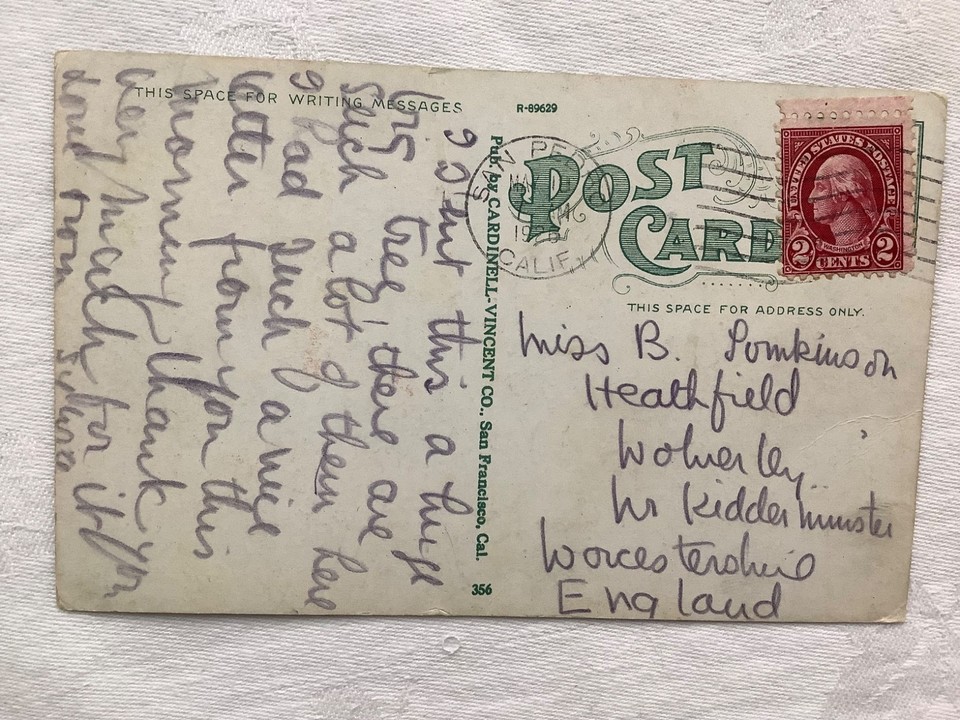 THIS SPACE FOR WRITING MESSAGES
R-89629
Is'ent this a huge
big tree! there are
Such a lot of them here
I had such a nice
letter from you this
morning thank you
very much for it
from
Pub. by CARDINELL-VINCENT CO., San Francisco, Cal.
356
POST
CARD
CALIF.
UNITED STATES POSTAGE
WASHINGTON
2 CENTS 2
THIS SPACE FOR ADDRESS ONLY.
Miss B. Tomkinson
Heathfield
Wolverley
Nr Kidderminster
Worcestershire
England